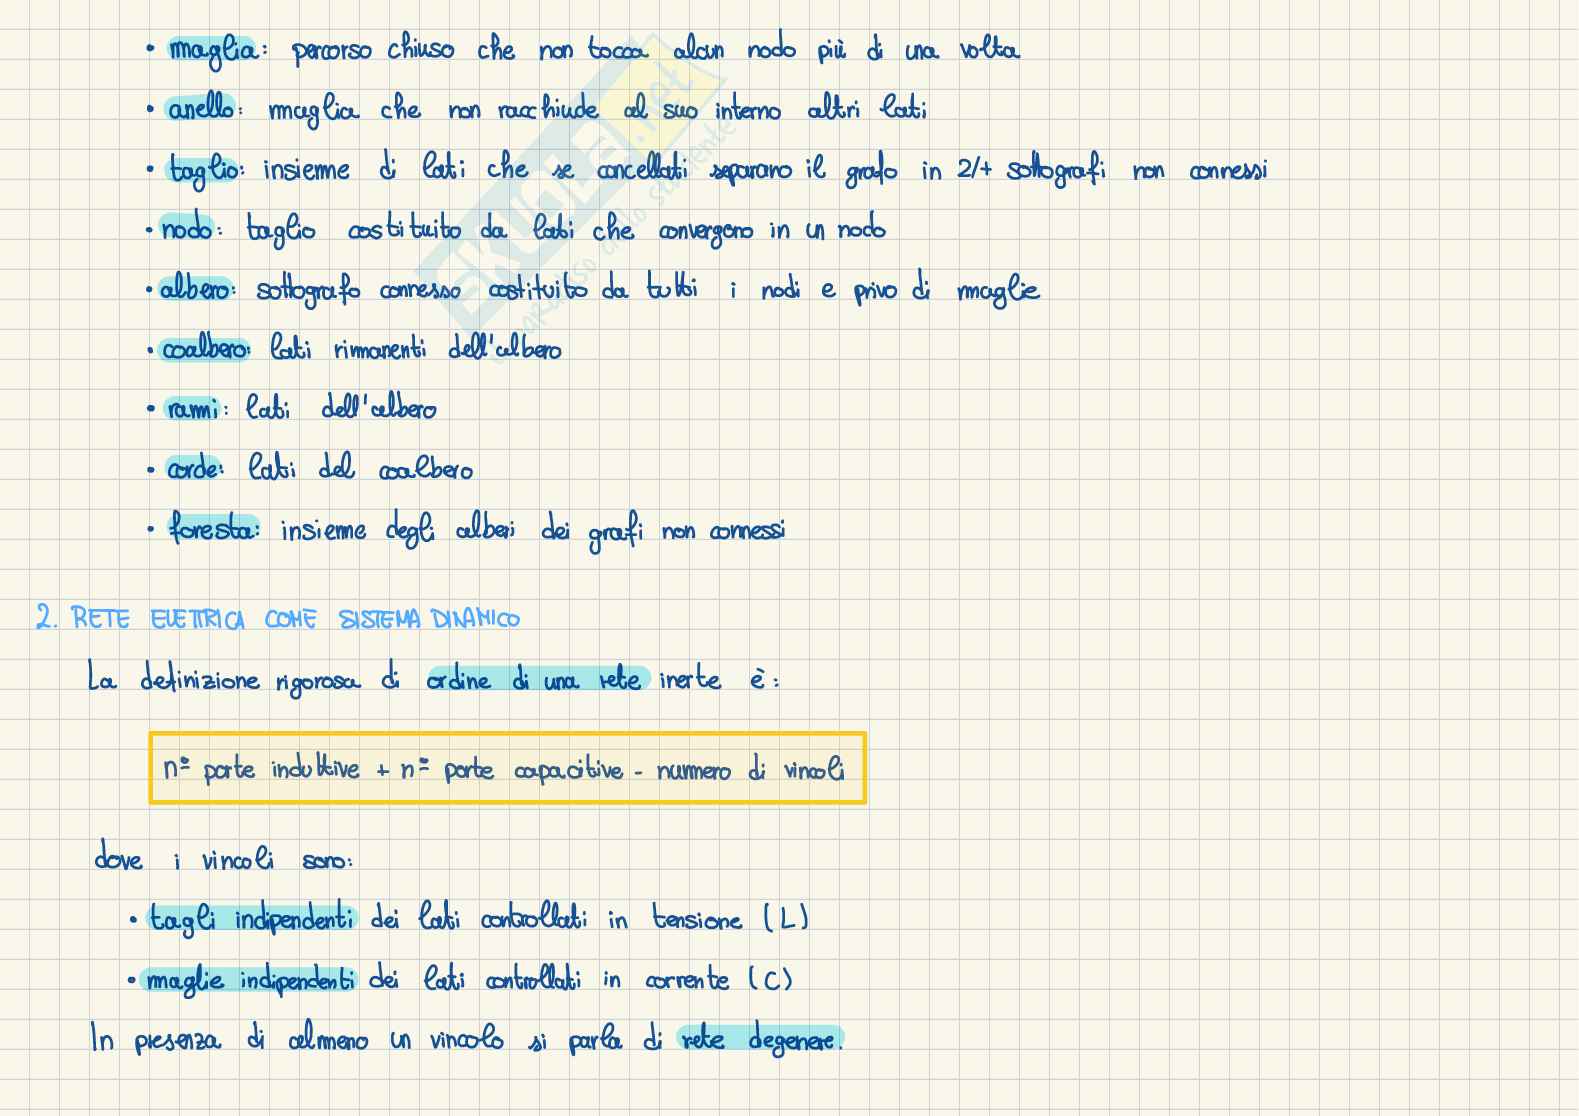 • maglia: percorso chiuso che non tocca alcun nodo più di una volta
• anello: maglia che non racchiude al suo interno altri lati
• taglio: insieme di lati che se cancellati separano il grafo in 2/+ sottografi non connessi
• nodo: taglio costituito da lati che convergono in un nodo
• albero: sottografo connesso costituito da tutti i nodi e privo di maglie
• coalbero: lati rimanenti dell'albero
• rami: lati dell'albero
• corde: lati del coalbero
• foresta: insieme degli alberi dei grafi non connessi
SKUOLA.net
paradiso dello studente
2. RETE ELETTRICA COME SISTEMA DINAMICO
La definizione rigorosa di ordine di una rete inerte è:
nº porte induttive + nº porte capacitive - numero di vincoli
dove i vincoli sono:
• tagli indipendenti dei lati controllati in tensione (L)
• maglie indipendenti dei lati controllati in corrente (C)
In presenza di almeno un vincolo si parla di rete degenere.